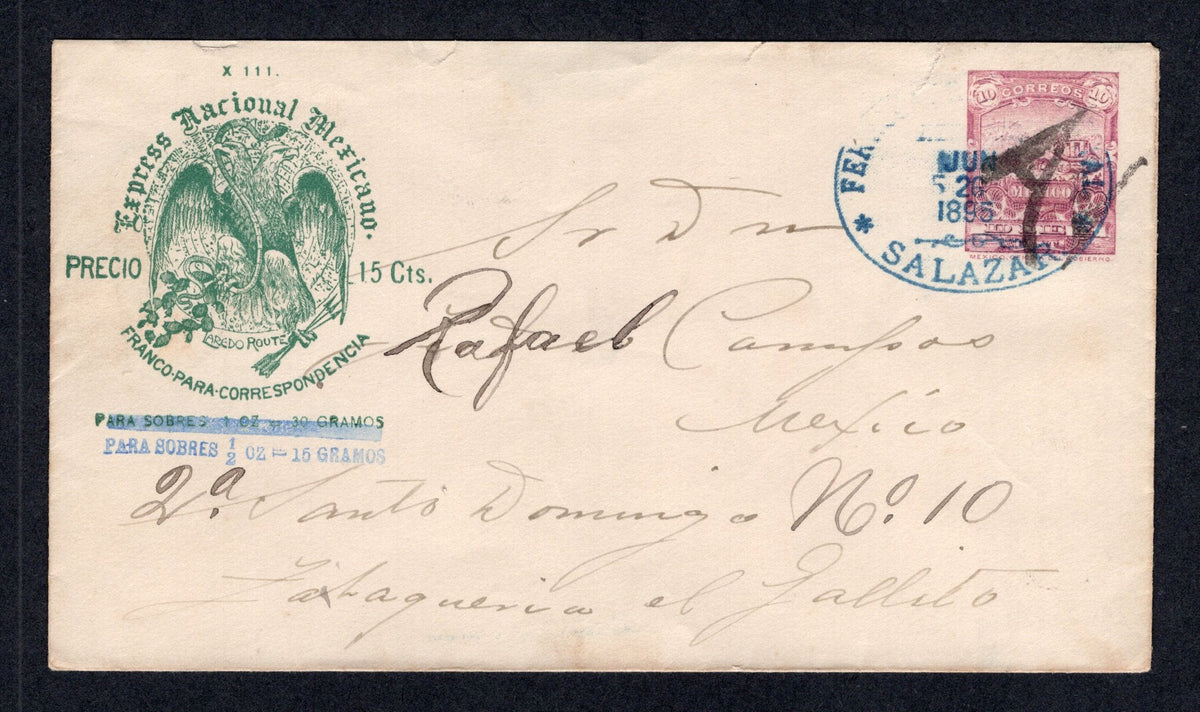 X 111.
Express Nacional Mexicano.
PRECIO 15 Cts.
LAREDO ROUTE
FRANCO·PARA·CORRESPONDENCIA
PARA SOBRES 1 OZ = 30 GRAMOS
PARA SOBRES 1/2 OZ = 15 GRAMOS
10 CORREOS 10
MEXICO
JUN
20
1895
* SALAZAR *
Sr Dn
Rafael Campos
Mexico
2ª Santo Domingo Nº. 10
el Gallito